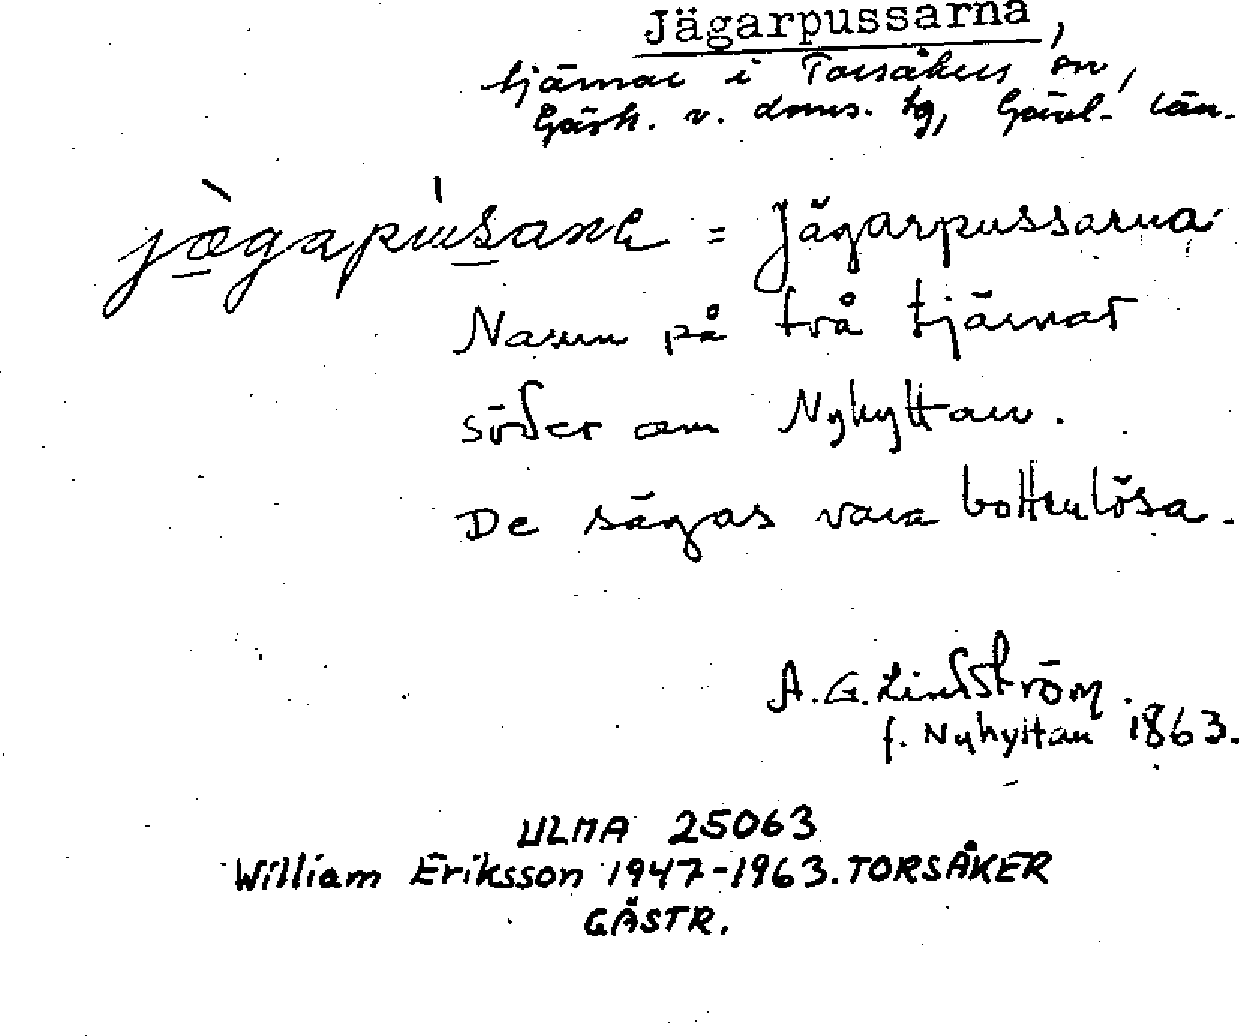 Jägarpussarna,
tjärnar i Torsåkers sn,
Gästr. v. doms. tg, Gävl. län.
jægapusane = Jägarpussarna
Namn på två tjärnar
söder om Nyhyttan.
De sägas vara bottenlösa.
A. G. Lindström.
f. Nyhyttan 1863.
ULMA 25063
William Eriksson 1947-1963. TORSÅKER
GÄSTR.